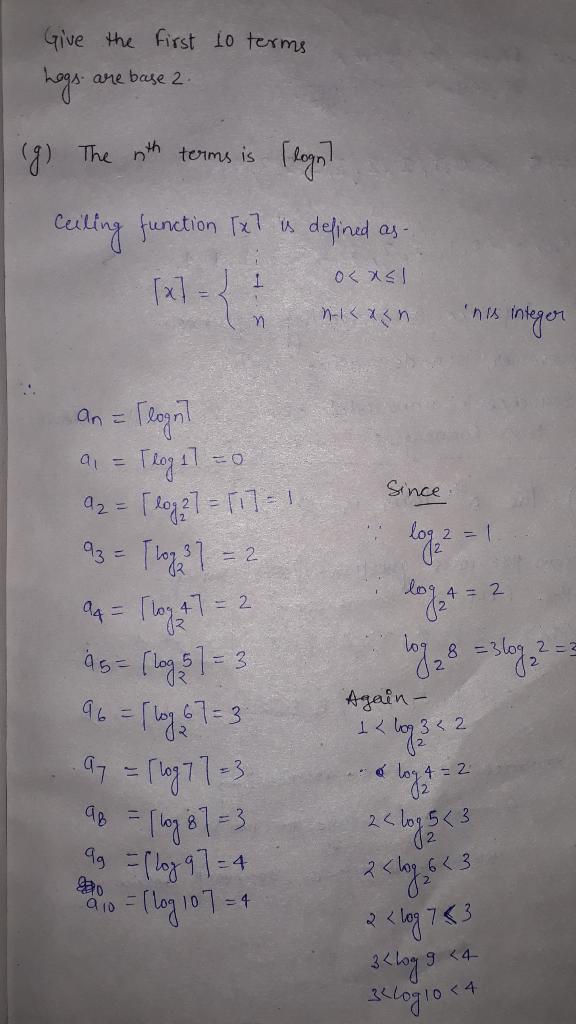 Give the First 10 terms
Logs. are base 2.
(g) The nth terms is ⌈logn⌉
Ceiling function ⌈x⌉ is defined as -
⌈x⌉ = { 1 0 < x ≤ 1
n n-1 < x ≤ n 'n is integer
∴
an = ⌈logn⌉
a1 = ⌈log 1⌉ = 0
a2 = ⌈log₂2⌉ = ⌈1⌉ = 1
a3 = ⌈log₂3⌉ = 2
a4 = ⌈log₂4⌉ = 2
a5 = ⌈log₂5⌉ = 3
a6 = ⌈log₂6⌉ = 3
a7 = ⌈log 7⌉ = 3
a8 = ⌈log 8⌉ = 3
a9 = ⌈log 9⌉ = 4
a10 = ⌈log 10⌉ = 4
Since
∵ log₂2 = 1
∵ log₂4 = 2
∵ log₂8 = 3log₂2 = 3
Again -
1 < log₂3 < 2
log₂4 = 2
2 < log₂5 < 3
2 < log₂6 < 3
2 < log 7 < 3
3 < log 9 < 4
3 < log 10 < 4